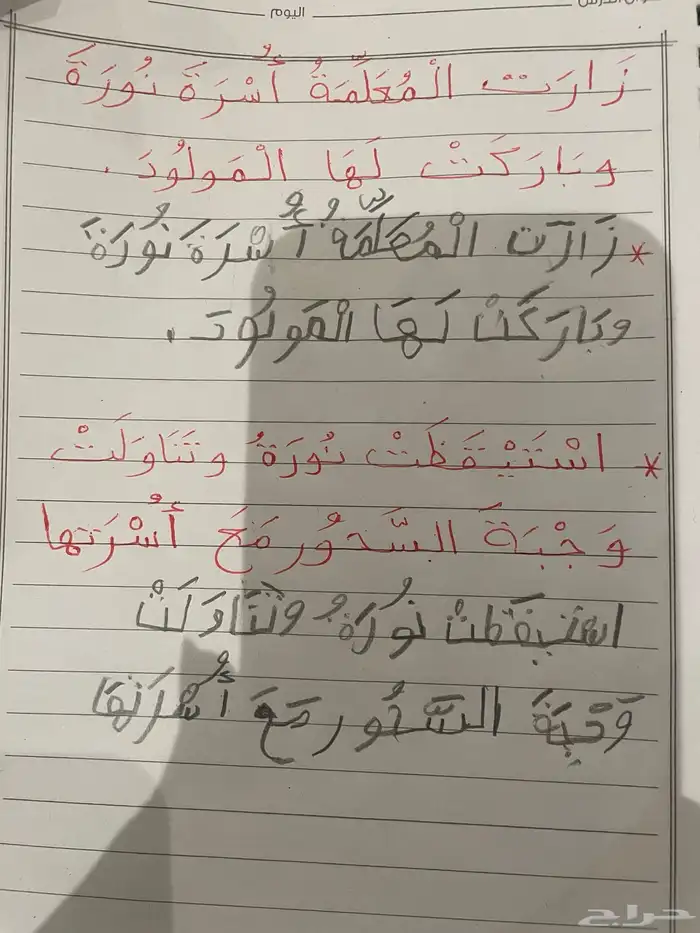 اليوم
زَارَت الْمُعَلِّمَةُ أُسْرَةَ نُورَةَ
وبَارَكَتْ لَهَا الْمَولُودَ .
* زَارَت الْمُعَلِّمَةُ أُسْرَةَ نُورَةَ
وبَارَكَتْ لَهَا الْمَولُودَ .
* اسْتَيْقَظَتْ نُورَةُ وتَنَاوَلَتْ
وَجْبَةَ السَّحُورِ مَعَ أُسْرَتها
استيقَظتْ نُورَةُ وتَنَاوَلَتْ
وَجْبَةَ السَّحُور مَعَ أُسْرَتهَا
حراج